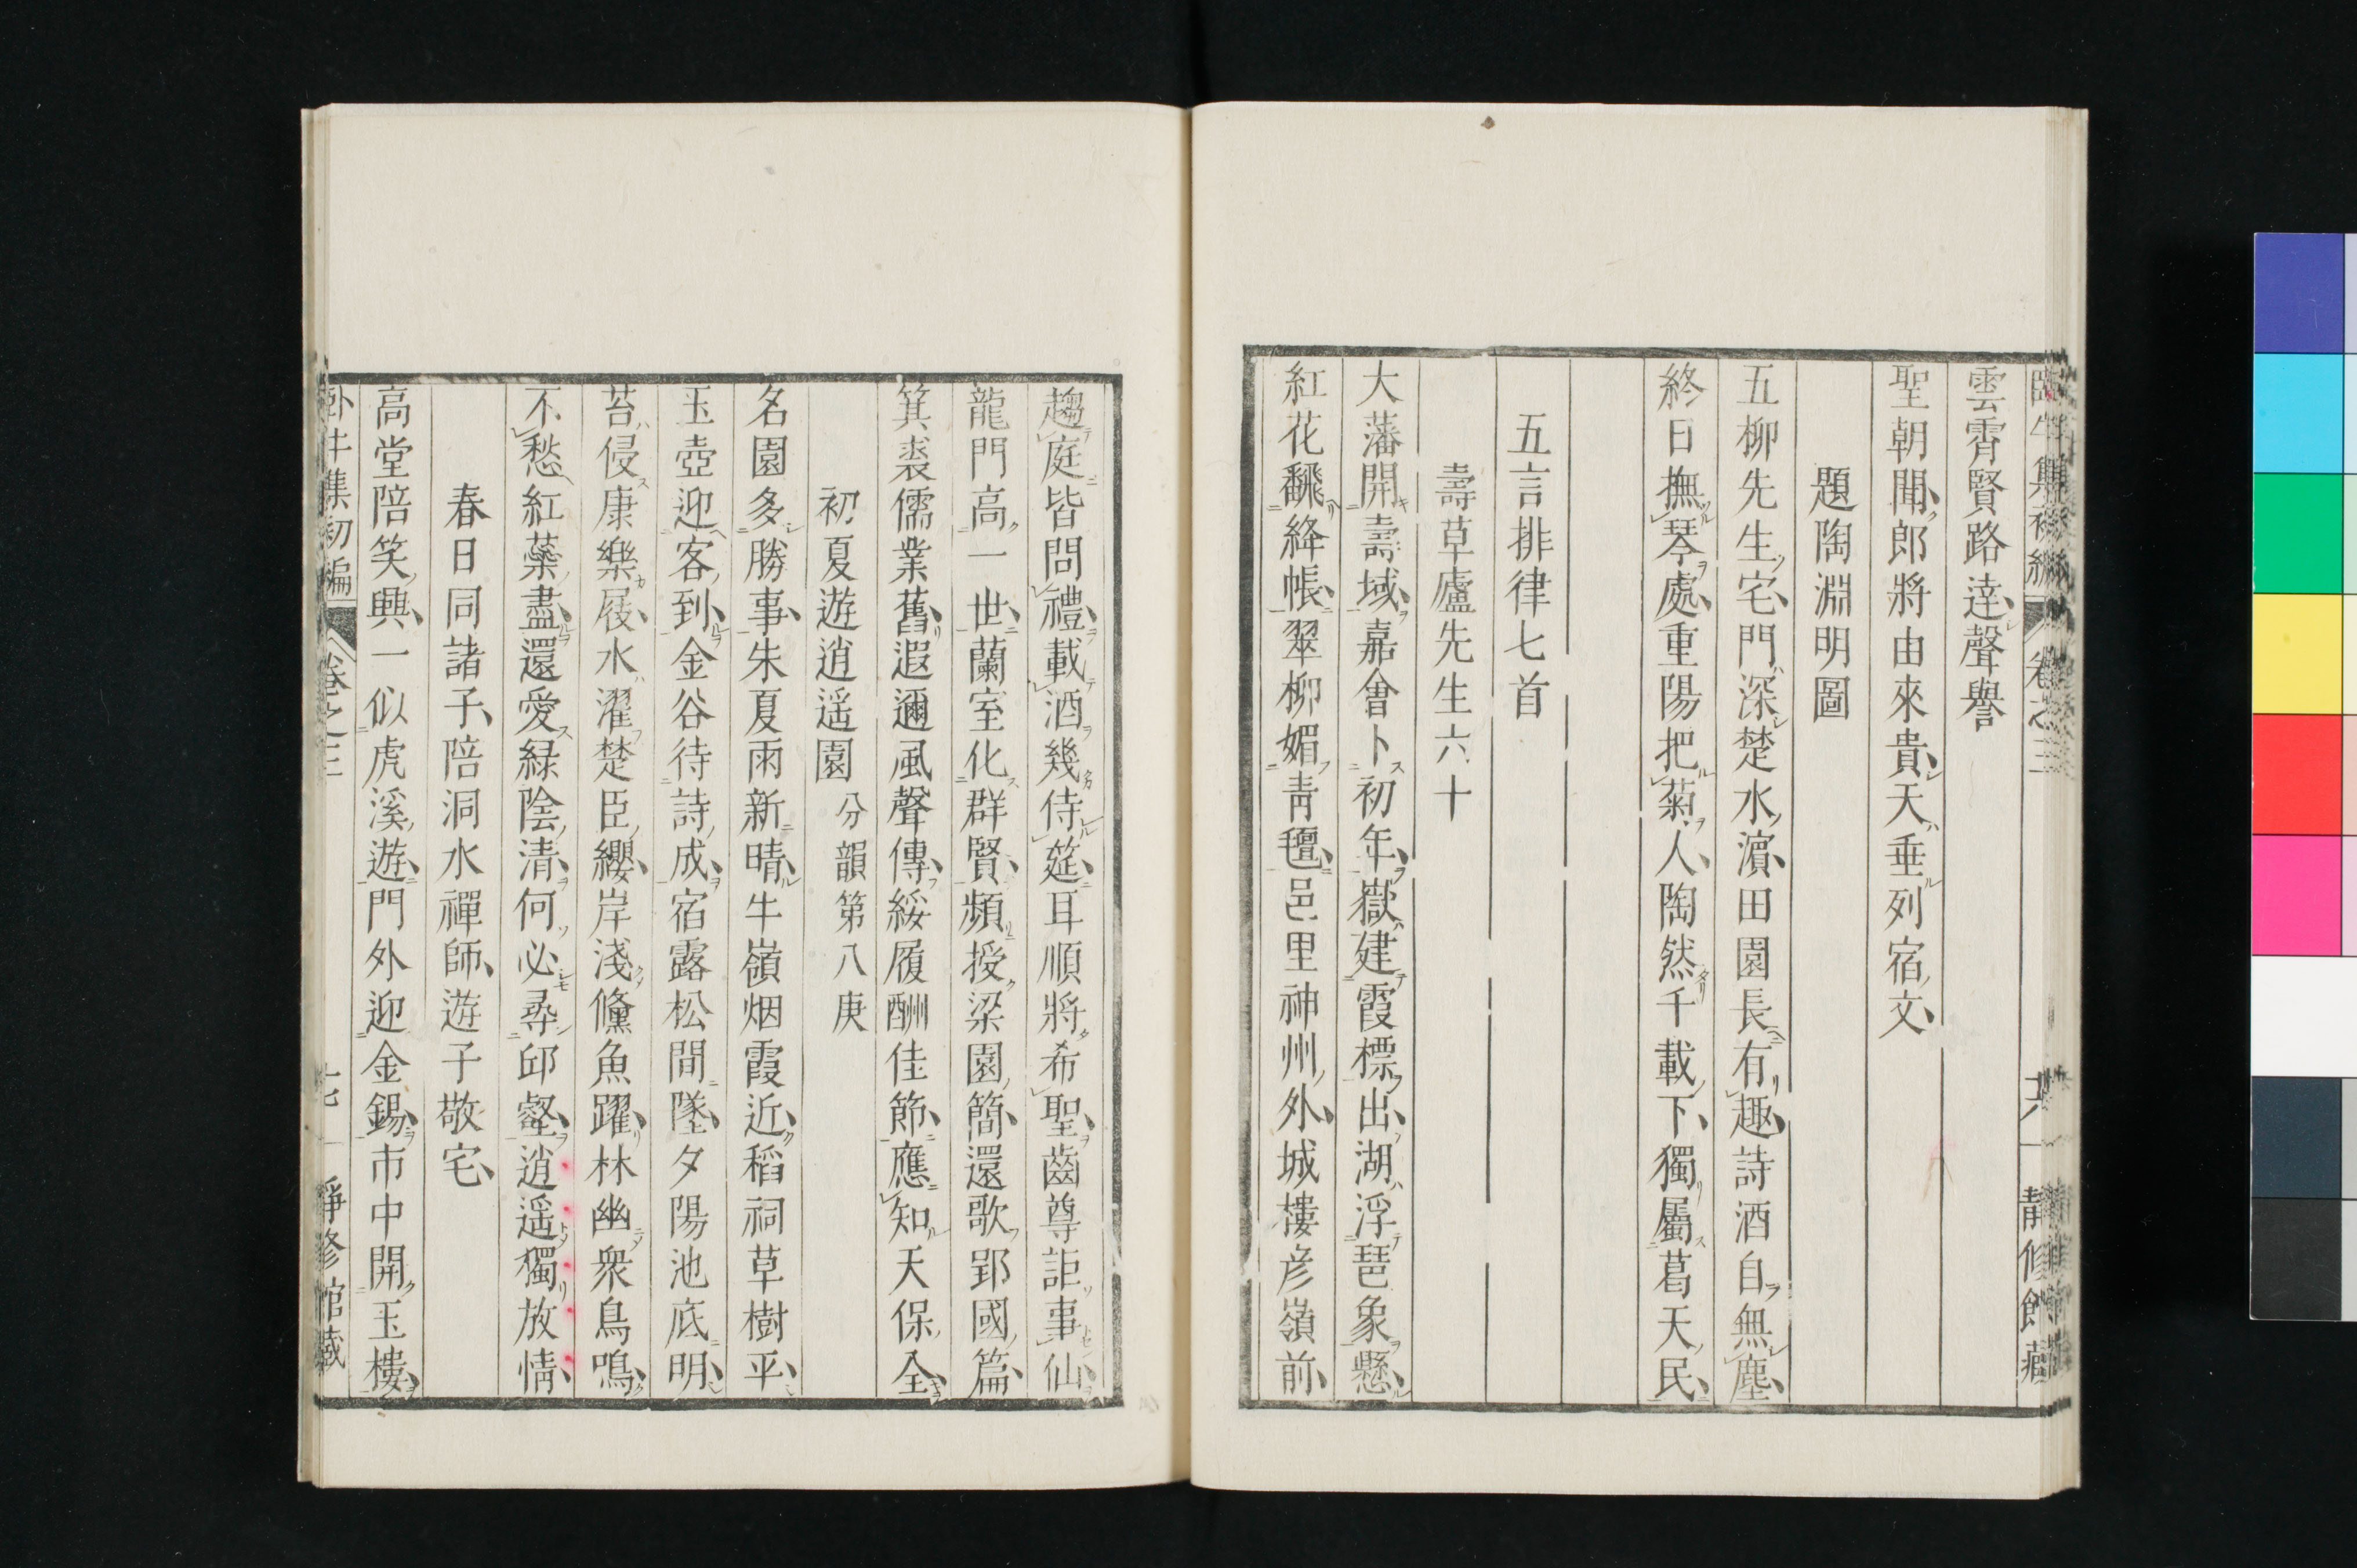 臥牛集初編 卷之三 六 靜修館藏
雲霄賢路達聲譽
聖朝聞郎將由來貴天垂列宿文
題陶淵明圖
五柳先生宅門深楚水濵田園長有趣詩酒自無塵
終日撫琴處重陽把菊人陶然千載下獨屬葛天民
五言排律七首
壽草廬先生六十
大藩開壽域嘉會卜初年嶽建霞標出湖浮琶象懸
紅花飜絳帳翠柳媚靑氊邑里神州外城樓彦嶺前
趨庭皆問禮載酒幾侍筵耳順將希聖齒尊詎事仙
龍門高一世蘭室化群賢頻授梁園簡還歌郢國篇
箕裘儒業舊遐邇風聲傳綏履酬佳節應知天保全
初夏遊逍遥園 分韻第八庚
名園多勝事朱夏雨新晴牛嶺烟霞近稻祠草樹平
玉壺迎客到金谷待詩成宿露松間墜夕陽池底明
苔侵康樂屐水濯楚臣纓岸淺鯈魚躍林幽衆鳥鳴
不愁紅藥盡還愛緑陰清何必尋邱壑逍遥獨放情
春日同諸子陪洞水禪師遊子敬宅
高堂陪笑興一似虎溪遊門外迎金錫市中開玉樓
臥牛集初編 卷之三 七 靜修館藏